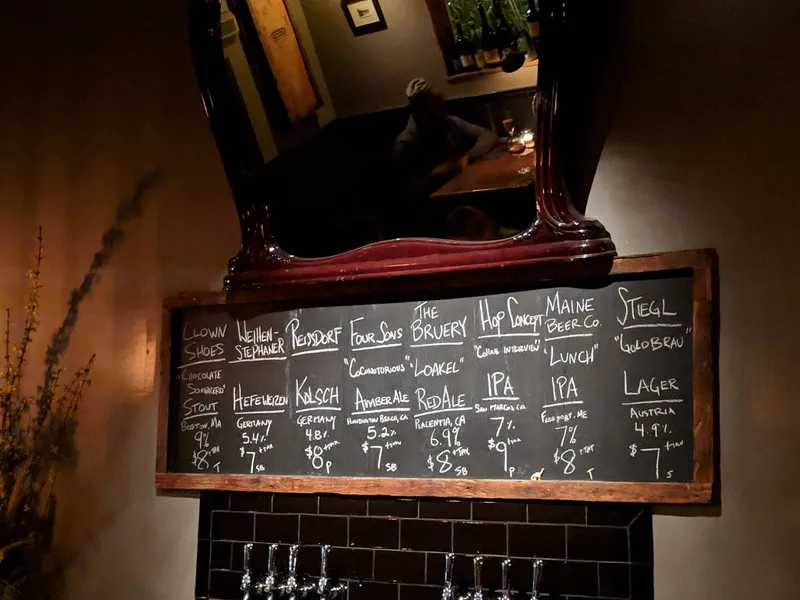 CLOWN
SHOES
"CHOCOLATE
SOMBRERO"
STOUT
BOSTON, MA
9%
$8 +TAX
T
WEIHEN-
STEPHANER
HEFEWEIZEN
GERMANY
5.4%
$7 +TAX
SB
REISSDORF
KÖLSCH
GERMANY
4.8%
$8 +TAX
P
FOUR SONS
"COCONOTORIOUS"
AMBER ALE
HUNTINGTON BEACH, CA
5.2%
$7 +TAX
SB
THE
BRUERY
"LOAKEL"
RED ALE
PLACENTIA, CA
6.9%
$8 +TAX
SB
HOP CONCEPT
"COLLAB INTERVIEW"
IPA
SAN MARCOS, CA
7%
$9 +TAX
P
MAINE
BEER CO.
"LUNCH"
IPA
FREEPORT, ME
7%
$8 +TAX
T
STIEGL
"GOLDBRAU"
LAGER
AUSTRIA
4.9%
$7 +TAX
S